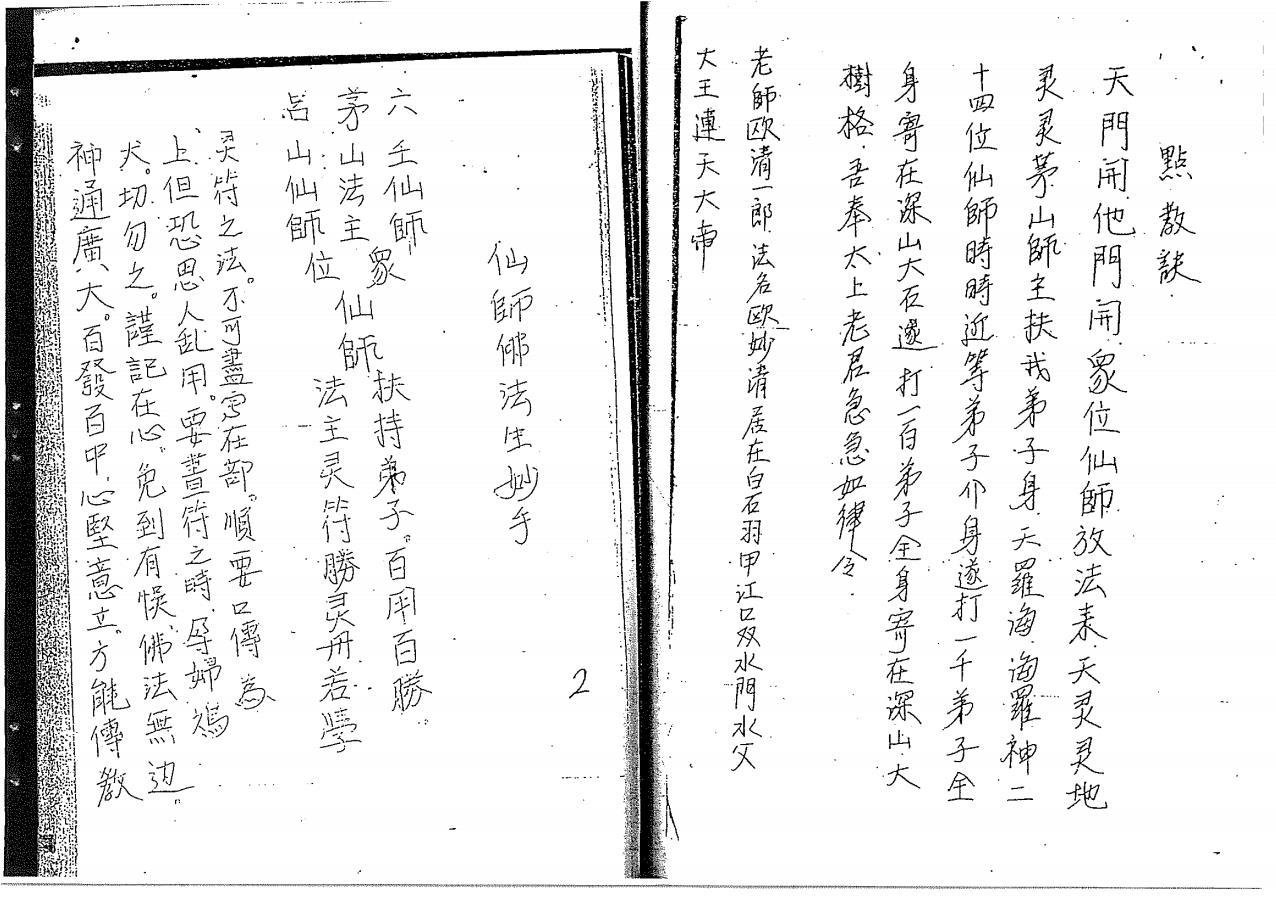 點教訣
天門開他門開眾位仙師放法来天灵灵地
灵灵茅山師主扶我弟子身天羅海海羅神二
十四位仙師時時近等弟子身遂打一千弟子全
身寄在深山大石遂打一百弟子全身寄在深山大
樹格吾奉太上老君急急如律令
老師欧清一郎法名欧妙清居在白石羽甲江口双水門水父
大王連天大帝
2
仙師佛法生妙手
六壬仙師
茅山法主
呂山仙師
眾仙師扶持弟子百用百勝
位法主灵符勝灵丹若學
灵符之法不可盡寫在部順要口傳為
上但恐思人乱用要畫符之時孕婦鴆
犬切勿之謹記在心免到有悞佛法無边
神通廣大百發百中心堅意立方能傳教